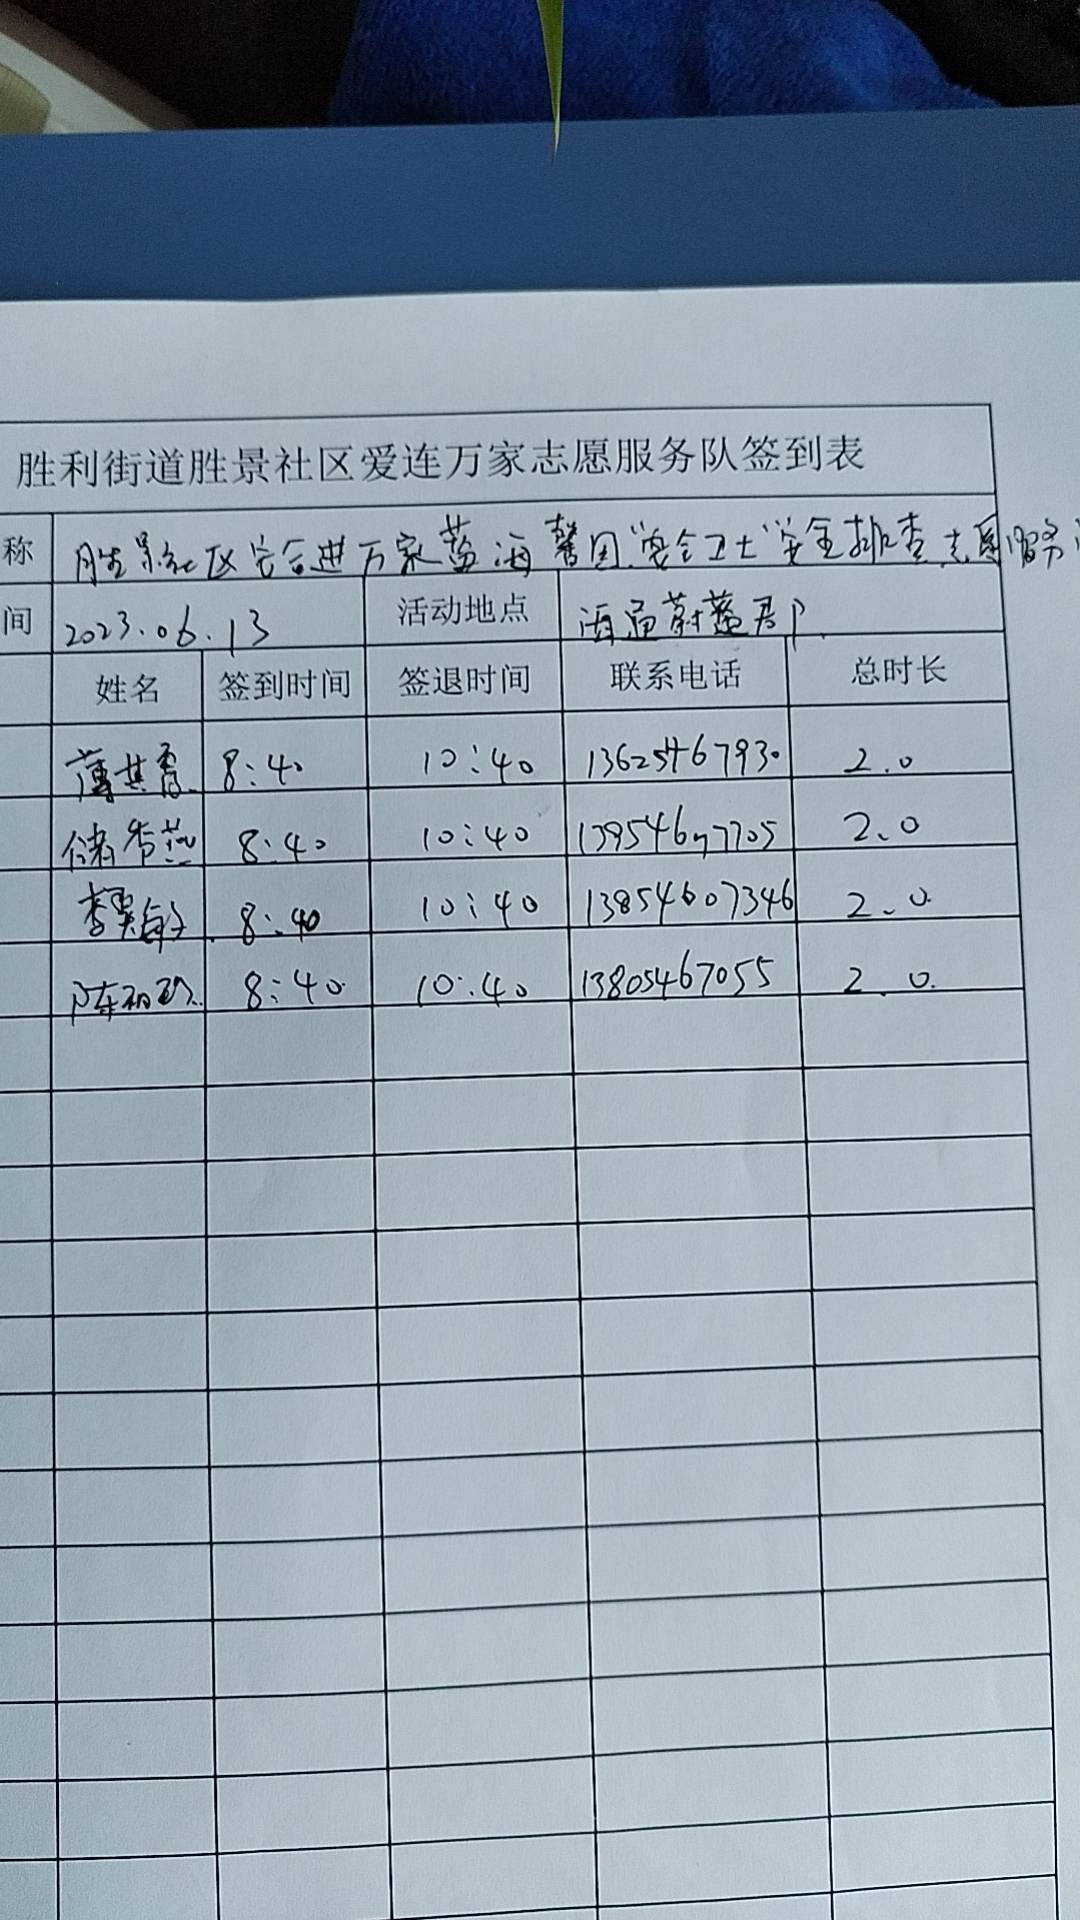 胜利街道胜景社区爱连万家志愿服务队签到表
称 胜景社区安全进万家蓝海馨园"安全卫士"安全排查志愿服务
间 2023.06.13 活动地点
姓名 签到时间 签退时间 联系电话 总时长
8:40 10:40 13625467930 2.0
储秀 8:40 10:40 2.0
李 敏 8:40 10:40 13854607346 2.0
陈 8:40 10:40 13805467055 2.0